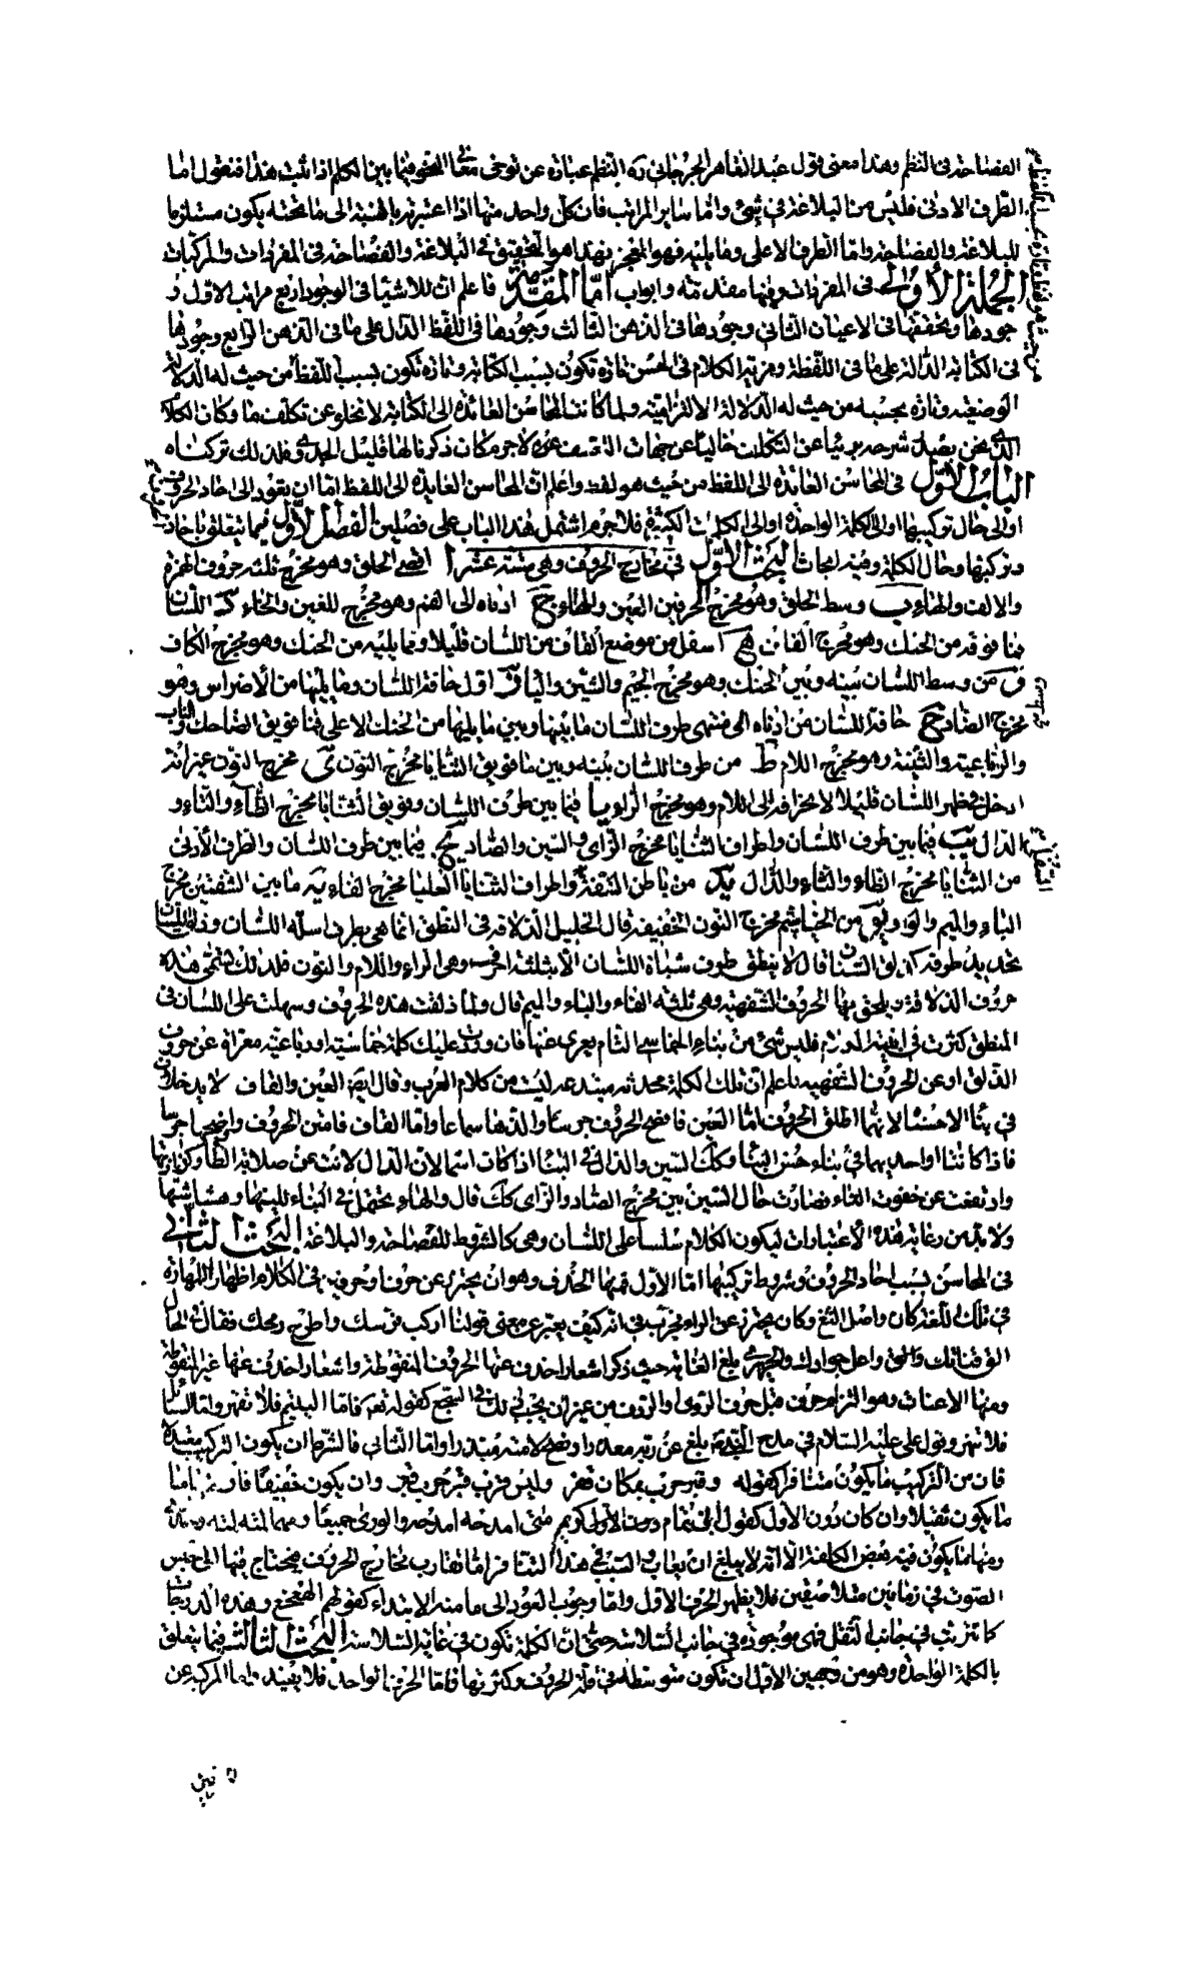 الفصاحة فى النظم وهذا معنى قول عبد القاهر الجرجانى ره النظم عبارة عن توخى معانى النحو فيما بين الكلم اذا ثبت هذا فنقول اما
الطرف الادنى فليس من البلاغة فى شئ واما ساير المراتب فان كل واحد منها اذا اعتبرته بالنسبة الى ما تحته يكون مستلزما
للبلاغة والفصاحة واما الطرف الاعلى وما يليه فهو المعجز فهذا هو التحقيق فى البلاغة والفصاحة فى المفردات والمركبات
الجملة الاولى فى المفردات وفيها مقدمة وابواب اما المقدمة فاعلم ان للاشياء فى الوجود اربع مراتب الاول و
جودها وتحققها فى الاعيان الثانى وجودها فى الذهن الثالث وجودها فى اللفظ الدال على ما فى الذهن الرابع وجودها
فى الكتابة الدالة على ما فى اللفظ ومزية الكلام فى الحسن تارة تكون بسبب الكتابة وتارة تكون بسبب اللفظ من حيث له الدلالة
الوضعية وتارة بحسبه من حيث له الدلالة الالتزامية ولما كانت المحاسن العائدة الى الكتابة لا تخلو عن تكلف ما وكان الكلام
الذى نحن بصدد شرحه بريئا عن التكلف خاليا عن جهات التعسف لا جرم كان ذكرنا لها قليل الجدوى فلذلك تركناه
الباب الاول فى المحاسن العائدة الى اللفظ من حيث هو لفظ واعلم ان المحاسن العايدة الى اللفظ اما ان يعود الى احاد الحروف
او الى حال تركيبها او الى الكلمة الواحدة او الى الكلمات الكثيرة فلا جرم اشتمل هذا الباب على فصلين الفصل الاول فيما يتعلق باحاد
وتركبها وحال الكلمة وفيه ابحاث البحث الاول فى مخارج الحروف وهى ستة عشر ا اقصى الحلق وهو مخرج ثلثه حروف الهمزة
والالف والهاء ب وسط الحلق وهو مخرج الحرفين العين والحاء ج ادناه الى الفم وهو مخرج للغين والخاء د اللسان
بما فوقه من الحنك وهو مخرج القاف ه اسفل من موضع القاف من اللسان قليلا ومما يليه من الحنك وهو مخرج الكاف
و من وسط اللسان بينه وبين الحنك وهو مخرج الجيم والشين والياء ز اول حافة اللسان وما يليها من الاضراس وهو
مخرج الضاد ح حافة اللسان من ادناه الى منتهى طرف اللسان ما بينها وبين ما يليها من الحنك الاعلى مما فويق الضاحك والناب
والرباعية والثنية وهو مخرج اللام ط من طرف اللسان بينه وبين ما فويق الثنايا مخرج النون ى مخرج النون غير انه
ادخل فى ظهر اللسان قليلا لانحرافه الى اللام وهو مخرج الراء يا فيما بين طرف اللسان وفويق الثنايا مخرج الطاء والتاء و
الدال يب فيما بين طرف اللسان واطراف الثنايا مخرج الزاى والسين والصاد يج فيما بين طرف اللسان والطرف الادنى
من الثنايا مخرج الظاء والثاء والذال يد من باطن الشفة واطراف الثنايا العليا مخرج الفاء يه ما بين الشفتين مخرج
الباء والميم والواو يو من الخياشيم مخرج النون الخفيفة قال الخليل الذلاقة فى النطق انما هى بطرف اسلة اللسان وذلق اللسان
تحديد طرفه كذلق السنان قال لا ينطق طرف شباة اللسان الا بثلثة احرف وهى الراء واللام والنون فلذلك تسمى هذه
حروف الذلاقة ويلحق بها الحروف الشفهية وهى ثلثة الفاء والباء والميم قال ولما ذلقت هذه الحروف وسهلت على اللسان فى
المنطق كثرت فى ابنية الكلام فليس شئ من بناء الخماسى التام يعرى عنها فان وردت عليك كلمة خماسية او رباعية معراة عن حروف
الذلق او عن الحروف الشفهية فاعلم ان تلك الكلمة محدثة مبتدعة ليست من كلام العرب وقال ايضا العين والقاف لا يدخلان
فى بناء الا حسنتاه لانهما اطلق الحروف اما العين فانصع الحروف جرسا والذها سماعا واما القاف فامتن الحروف واوضحها جرسا
فاذا كانتا او احديهما فى بناء حسن البناء وكذلك السين والدال فى البناء اذا كان اسما لان الدال لانت عن صلابة الطاء وكزازتها
وارتفعت عن خفوت التاء فصارت حال السين بين مخرج الصاد والزاى كذلك قال والهاء يحتمل فى البناء للينها وهشاشتها
ولا بد من رعاية هذه الاعتبارات ليكون الكلام سلسا على اللسان وهى كالشروط للفصاحة والبلاغة البحث الثانى
فى المحاسن بسبب احاد الحروف وشروط تركيبها اما الاول فمنها الحذف وهو ان يحترز عن حرف او حروف فى الكلام اظهارا للمهارة
فى تلك اللغة كان واصل الثغ وكان يحترز عن الراء فجرب فى انه كيف يعبر عن معنى قولنا اركب فرسك واطرح رمحك فقال فى الحال
الق قناتك واعل جوادك والحريرى بلغ الغاية حيث ذكر اشعارا حذف عنها الحروف المنقوطة واشعارا حذف عنها غير المنقوطة
ومنها الاعنات وهو التزام حرف قبل حرف الروى او الردف من غير ان يجب ذلك فى السجع كقوله تعالى فاما اليتيم فلا تقهر واما السائل
فلا تنهر وقول على عليه السلام فى مدح واما الثانى فالشرط ان يكون التركيب معتدلا
فان من التركيب ما يكون متنافرا كقوله وقبر حرب بمكان قفر وليس قرب قبر حرب قبر وان يكون خفيفا
ما يكون ثقيلا وان كان دون الاول كقول ابى تمام كريم متى امدحه امدحه والورى جميعا ومهما لمته لمته وحدى
ومنها ما يكون فيه بعض الكلفة الا انه لا يبلغ ان يعاب والسبب فى هذا التنافر اما تقارب مخارج الحروف فيحتاج فيها الى حبس
الصوت فى زمانين متلاصقين فلا يظهر الحرف الاول واما وجوب العود الى ما منه الابتداء كقولهم الهعخع وهذه الدرجات
كما تترتب فى جانب الثقل فهى موجودة فى جانب السلاسة حتى ان الكلمة تكون فى غاية السلاسة البحث الثالث فيما يتعلق
بالكلمة الواحدة وهو من وجهين الاول ان تكون متوسطة فى قلة الحروف وكثرتها فاما الحرف الواحد فلا يفيد واما المركبة عن